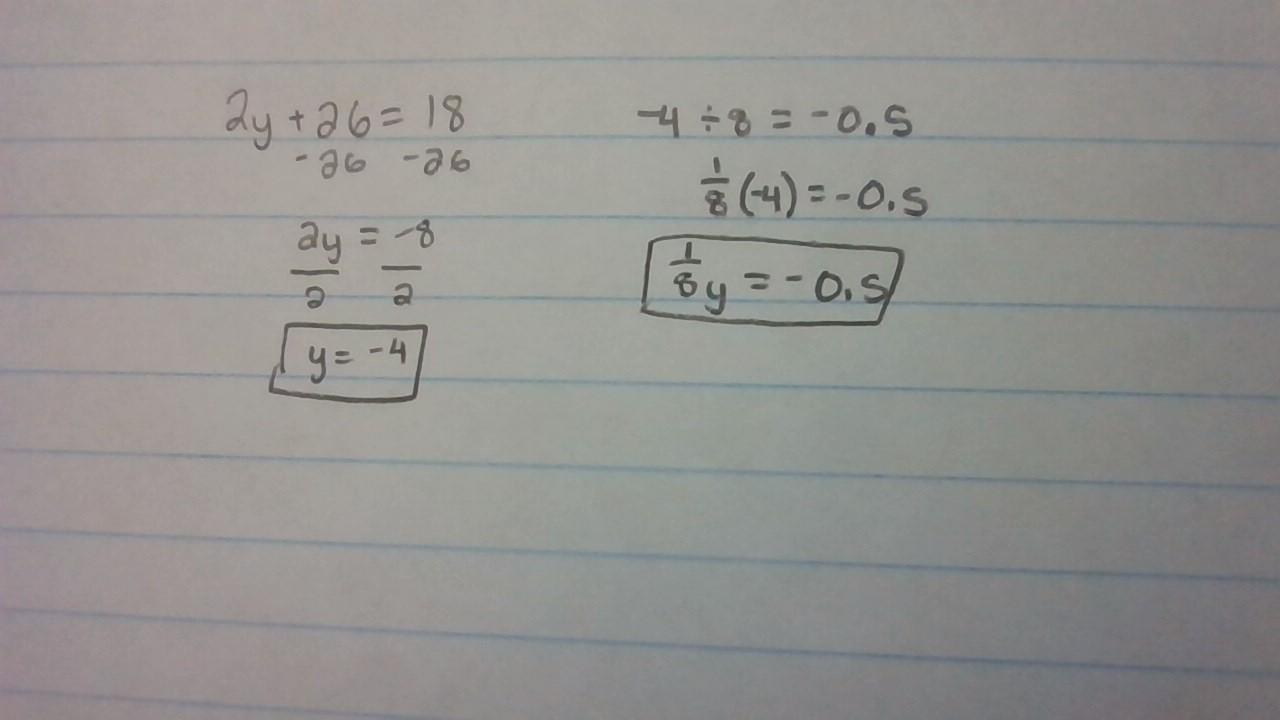 2y + 26 = 18
-26 -26
2y = -8
2 2
y = -4
-4 ÷ 8 = -0.5
1/8 (-4) = -0.5
1/8 y = -0.5